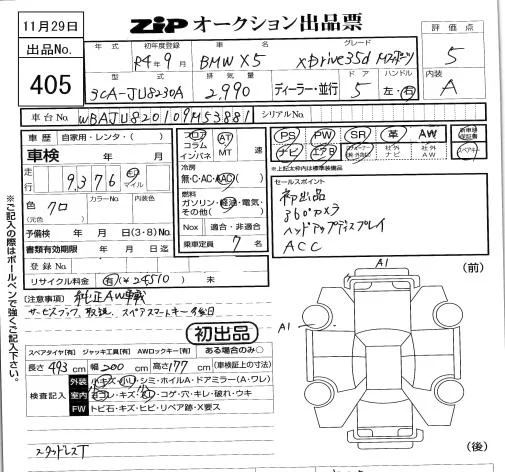 11月29日
ZiP オークション出品票
出品No.
405
年式
初年度登録 R4年9月
車名 BMW X5
グレード xDrive35d Mスポーツ
評価点 5
型式 3CA-JU8230A
排気量 2,990
ディーラー・並行
ドア 5
ハンドル 左・右
内装 A
車台No. WBAJU820109M53881
シリアルNo.
車歴 自家用・レンタ・( )
車検 年 月
走行 9,376 km マイル
色 クロ
(元色)
カラーNo.
内装色
予備検 年 月 日(3・8)No.
書類有効期限 年 月 日迄
登録No.
リサイクル料金 有(¥24510) 未
フロア コラム インパネ
AT MT 速
冷房
無・C・AC・AAC( )
燃料
ガソリン・軽油・電気・その他( )
Nox 適合・非適合
乗車定員 7 名
PS PW SR 革 AW
ナビ エアB 社外ナビ 社外AW
※上記太枠内は標準装備品
セールスポイント
初出品
360°カメラ
ヘッドアップディスプレイ
ACC
(注意事項) 純正AW車載
サービスブック、取説、スペアスマートキー後日
初出品
スペアタイヤ[有] ジャッキ工具[有] AWロックキー[有] ある場合のみ○
長さ 493 cm 幅 200 cm 高さ 177 cm (車検証上の寸法)
検査記入
外装 小キズ・小凹・シミ・ホイルA・ドアミラー(A・ワレ)
室内 ヨゴレ・キズ・凹・コゲ・穴・キレ・破れ・ウキ
FW トビ石・キズ・ヒビ・リペア跡・X要ス
スタッドレスT
※ご記入の際はボールペンで強くご記入下さい。
A1
(前)
A1
(後)